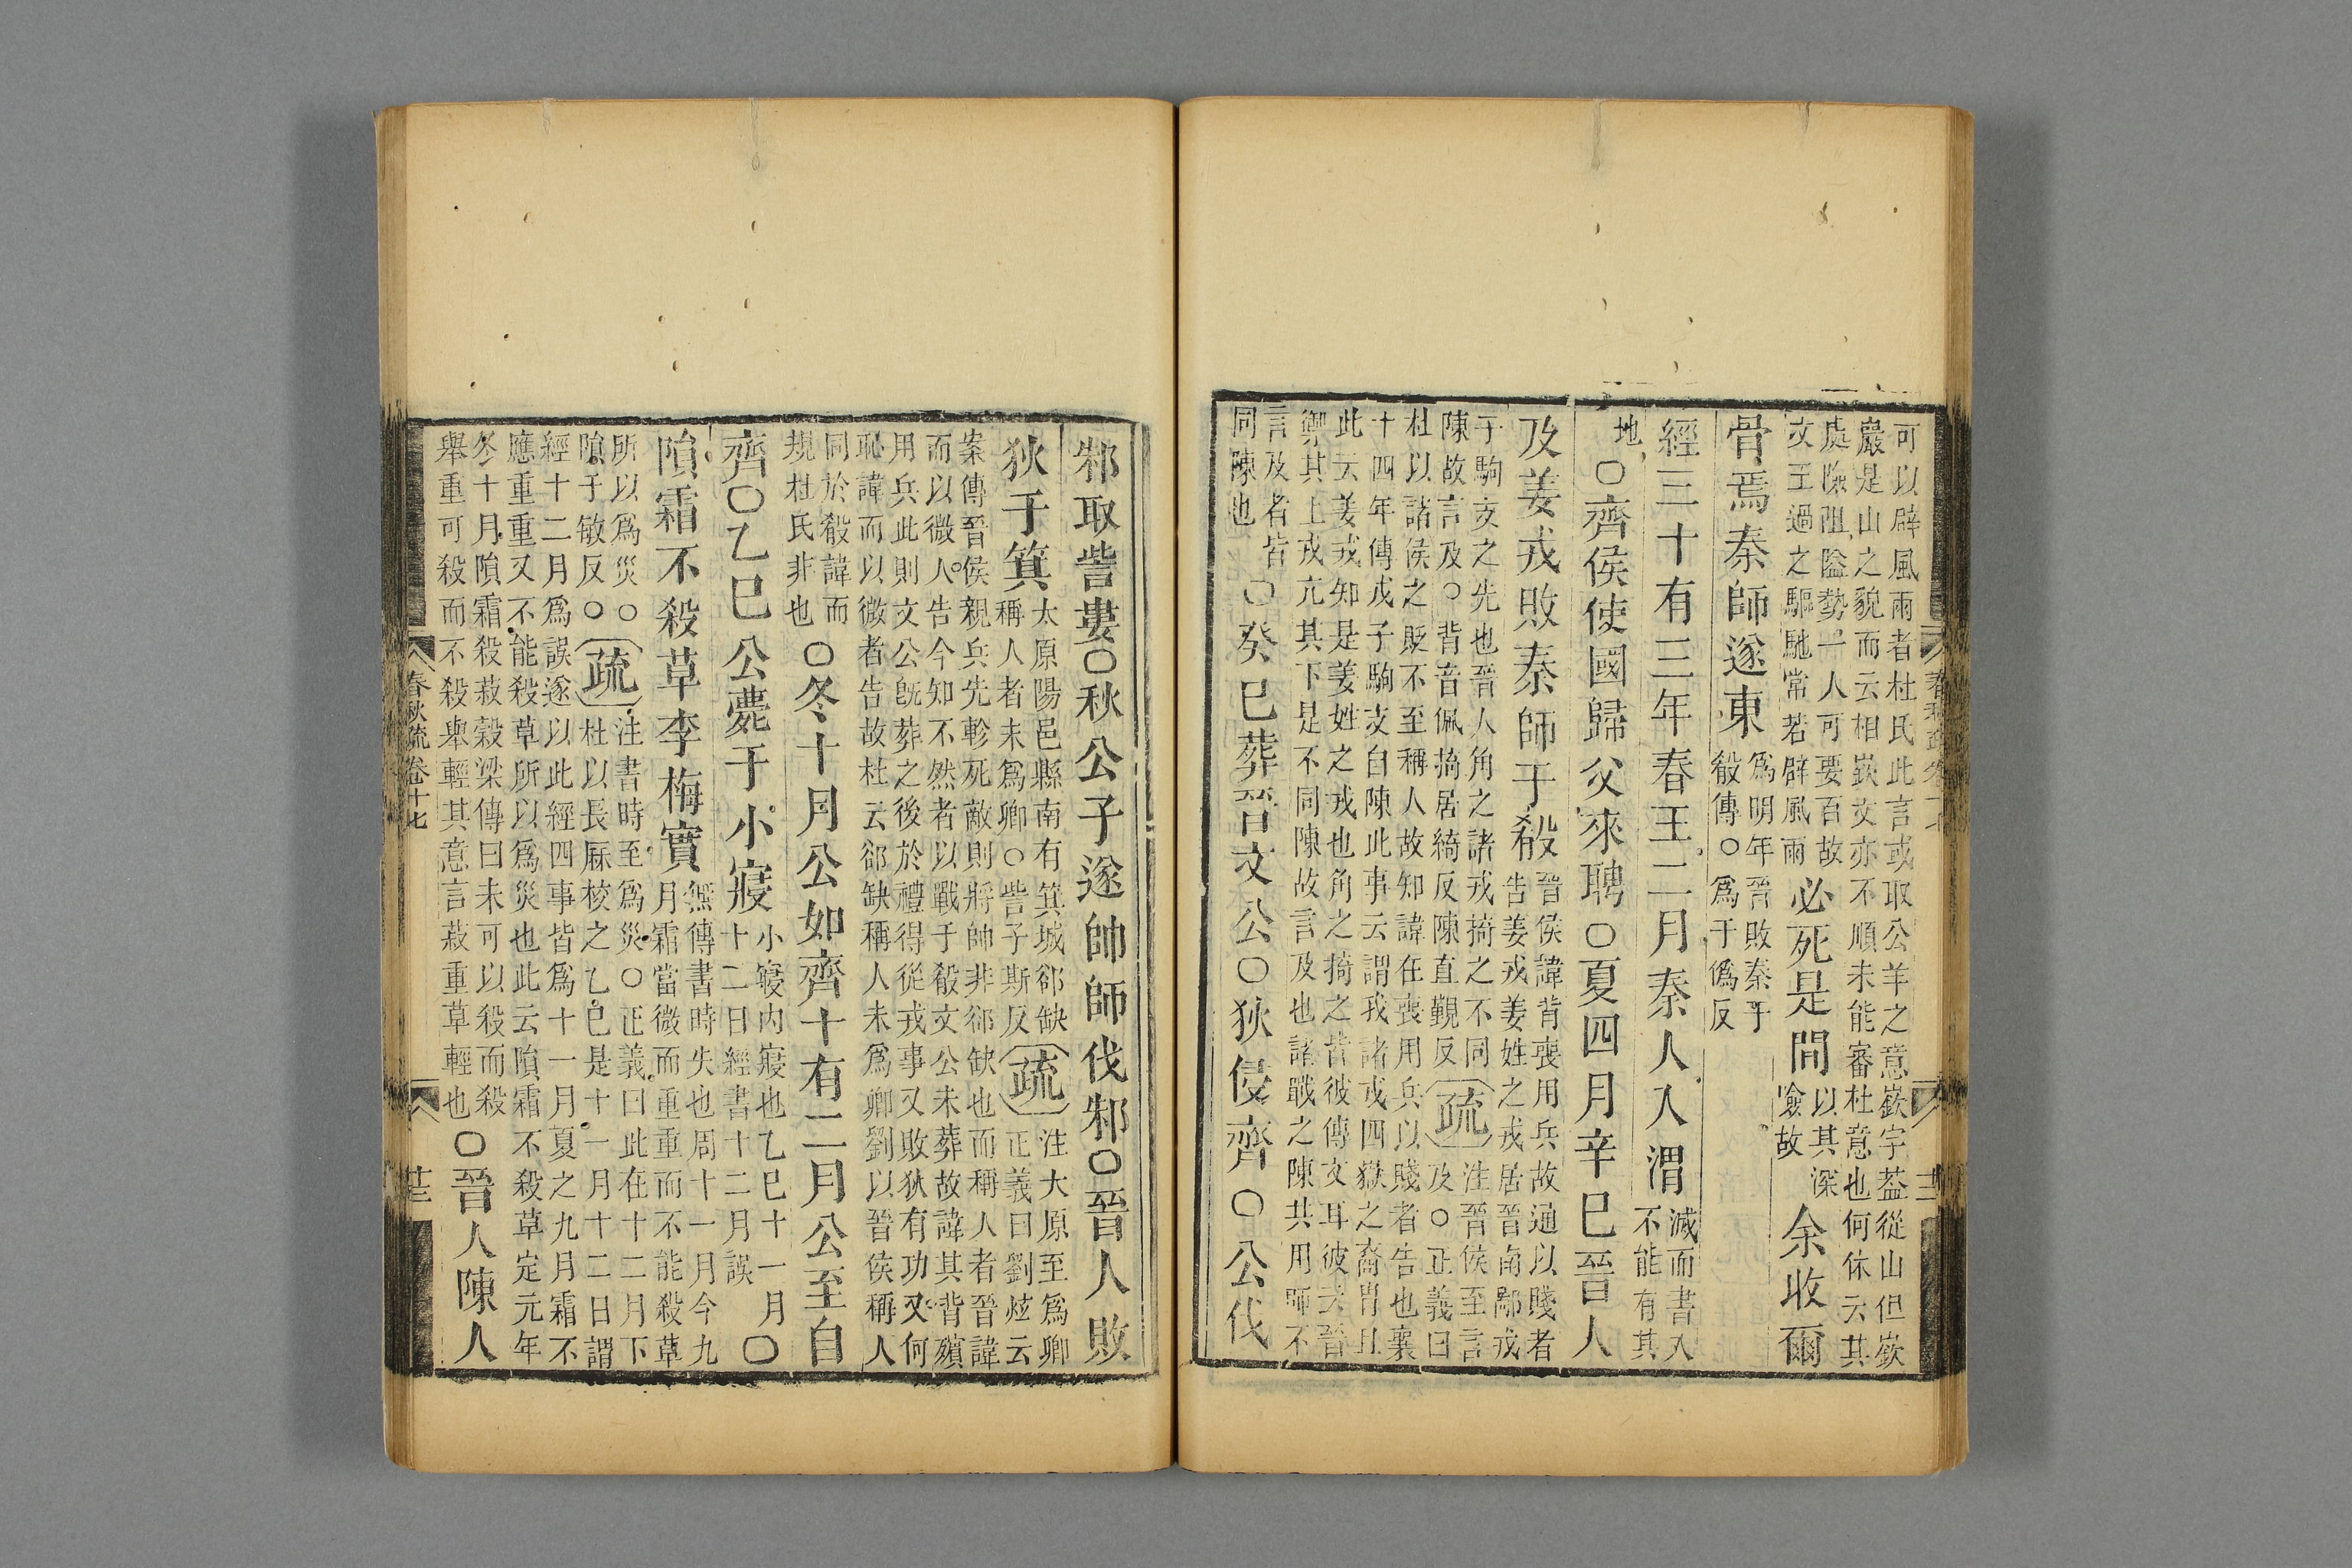 可以辟風雨者杜氏此言或取公羊之意嶔字葢從山但嶔
巖是山之貌而云相嶔文亦不順未能審杜意也何休云其
處險阻隘勢一人可要百故
文王過之驅馳常若辟風雨
必死是間
以其深
險故
余收爾
骨焉秦師遂東
為明年晉敗秦于
殽傳○為于僞反
經三十有三年春王二月秦人入滑
滅而書入
不能有其
地
○齊侯使國歸父來聘○夏四月辛巳晉人
及姜戎敗秦師于殽
晉侯諱背喪用兵故通以賤者
告姜戎姜姓之戎居晉南鄙戎
子駒支之先也晉人角之諸戎掎之不同
陳故言及○背音佩掎居綺反陳直覲反
疏
注晉侯至言
及○正義曰
杜以諸侯之貶不至稱人故知諱在喪用兵以賤者告也襄
十四年傳戎子駒支自陳此事云謂我諸戎四嶽之裔胄且
此云姜戎知是姜姓之戎也角之掎之皆彼傳文耳彼云晉
禦其上戎亢其下是不同陳故言及也諸戰之陳共用師不
言及者皆
同陳也
○癸巳葬晉文公○狄侵齊○公伐
春秋疏卷十七
邾取訾婁○秋公子遂帥師伐邾○晉人敗
狄于箕
太原陽邑縣南有箕城郤缺
稱人者未為卿○訾子斯反
疏
注大原至為卿
正義曰劉炫云
案傳晉侯親兵先軫死敵則將帥非郤缺也而稱人者晉諱
而以微人告今知不然者以戰于殽文公未葬故諱其背殯
用兵此則文公旣葬之後於禮得從戎事又敗狄有功又何
恥諱而以微者告故杜云郤缺稱人未為卿劉以晉侯稱人
同於殽諱而
規杜氏非也
○冬十月公如齊十有二月公至自
齊○乙巳公薨于小寢
小寢內寢也乙巳十一月
十二日經書十二月誤
○
隕霜不殺草李梅實
無傳書時失也周十一月今九
月霜當微而重重而不能殺草
所以為災○
隕于敏反○
疏
注書時至為災○正義曰此在十二月下
杜以長厤校之乙巳是十一月十二日謂
經十二月為誤遂以此經四事皆為十一月夏之九月霜不
應重重又不能殺草所以為災也此云隕霜不殺草定元年
冬十月隕霜殺菽穀梁傳曰未可以殺而殺
舉重可殺而不殺舉輕其意言菽重草輕也
○晉人陳人
春秋疏卷十七